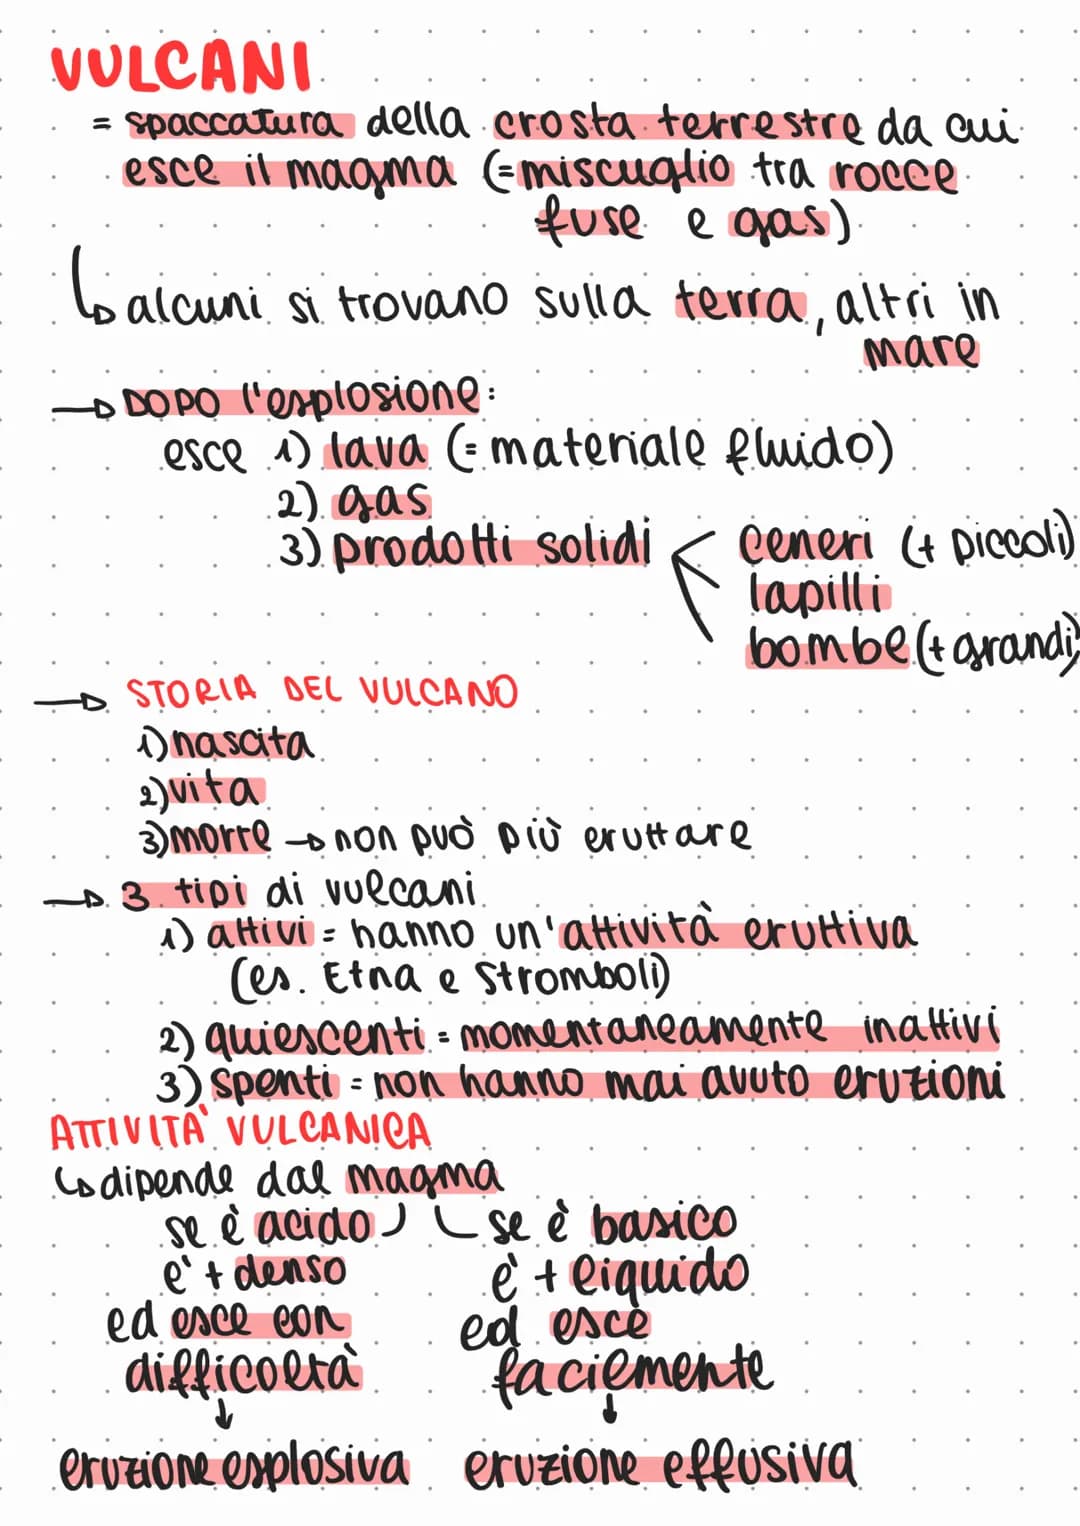 VULCANI
= spaccatura della crosta terrestre da cui
esce il magma (=miscuglio tra rocce
fuse e gas)
↳ alcuni si trovano sulla terra, altri in
mare
→ DOPO l'esplosione:
esce 1) lava (= materiale fluido)
2) gas
3) prodotti solidi < ceneri (+ piccoli)
lapilli
bombe (+ grandi)
→ STORIA DEL VULCANO
1) nascita
2) vita
3) morte → non può più eruttare
→ 3 tipi di vulcani
1) attivi = hanno un'attività eruttiva
(es. Etna e Stromboli)
2) quiescenti = momentaneamente inattivi
3) spenti = non hanno mai avuto eruzioni
ATTIVITA' VULCANICA
↳ dipende dal magma
se è acido se è basico
e' + denso e' + liquido
ed esce con ed esce
difficoltà facilmente
↓ ↓
eruzione esplosiva eruzione effusiva